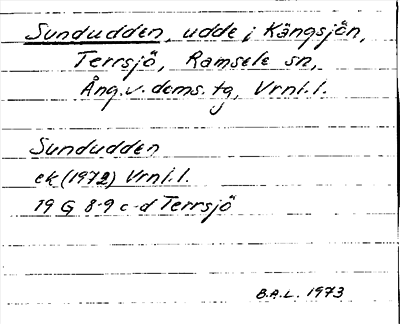 Sundudden, udde i Kängsjön,
Terrsjö, Ramsele sn,
Ång. v. doms. tg, Vrnl. l.
Sundudden
ek (1972) Vrnl. l.
19 G 8-9 c-d Terrsjö
B.A.L. 1973